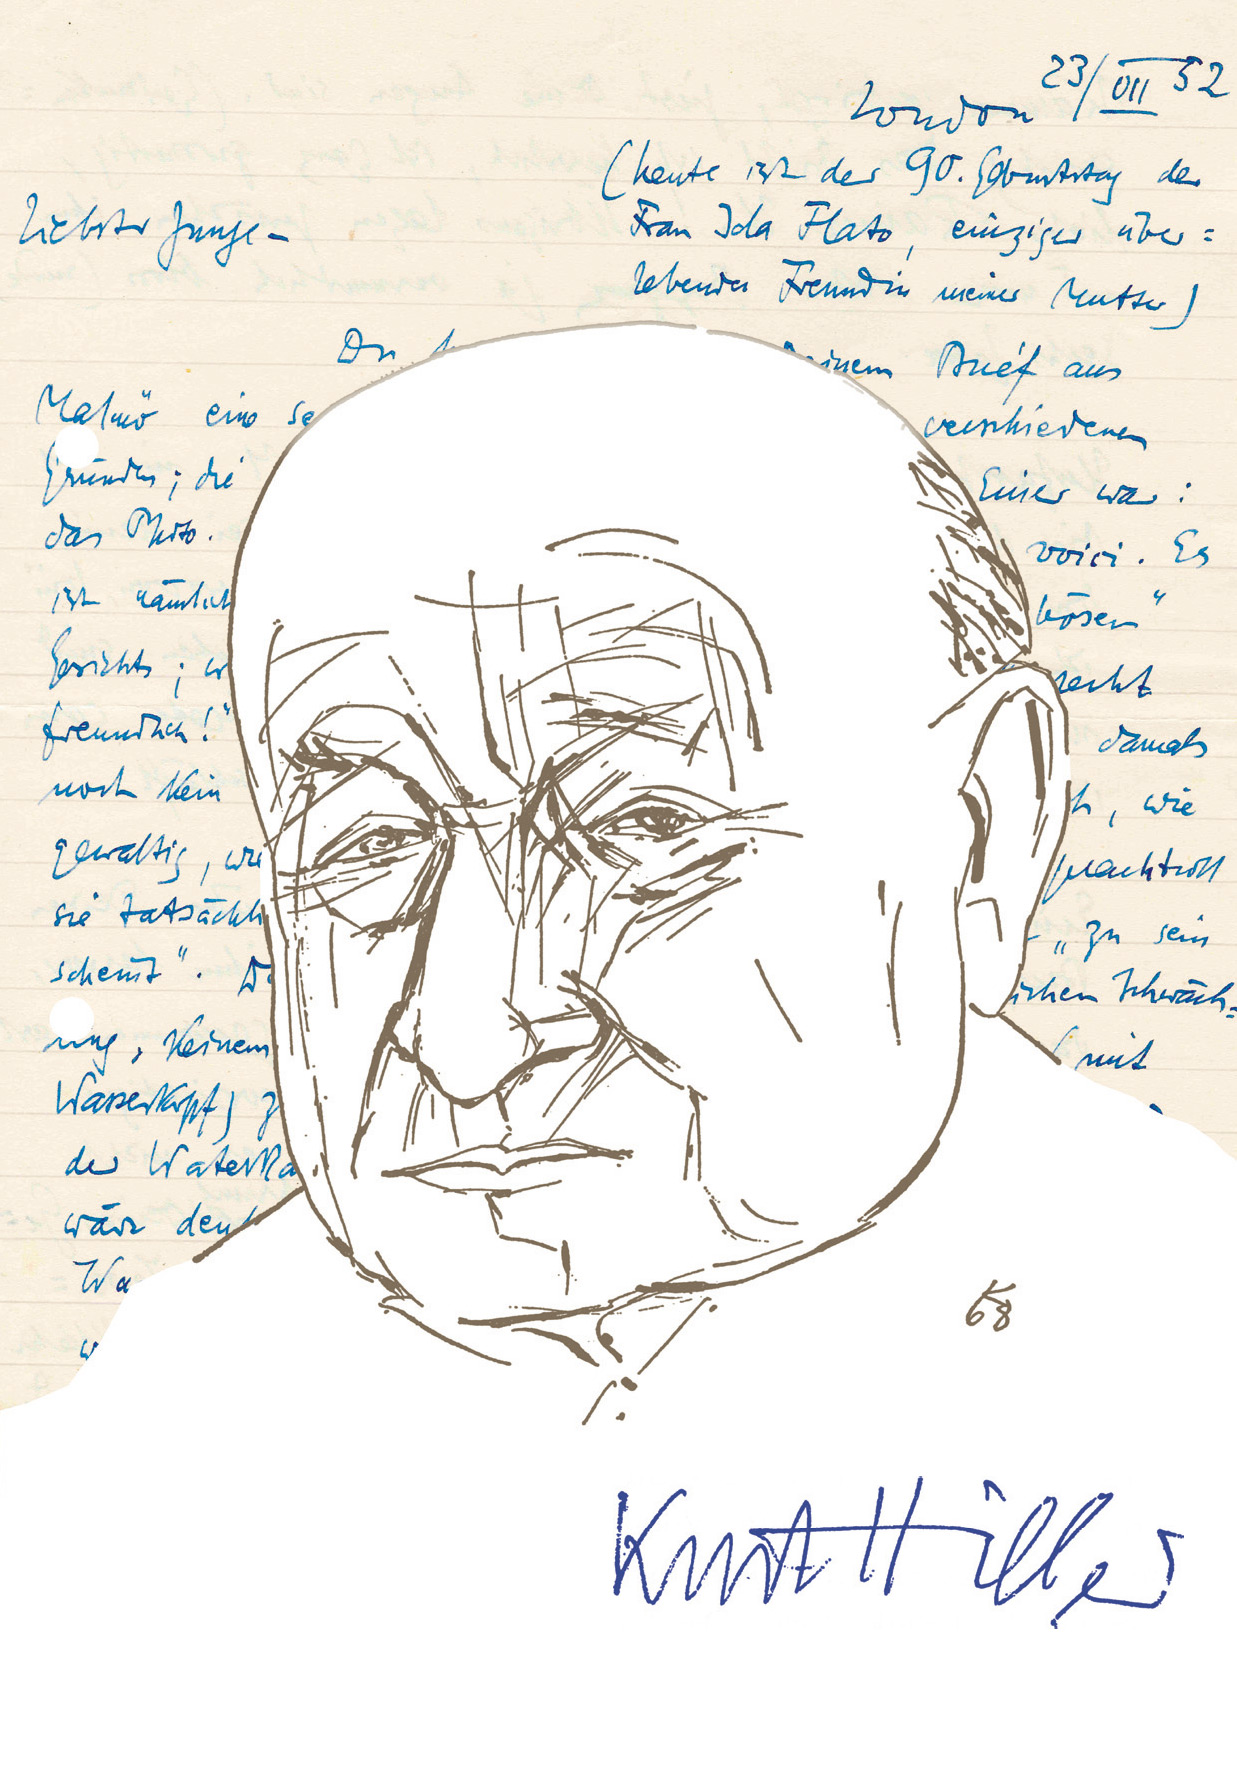 London 23/VII 52
(heute ist der 90. Geburtstag der
Frau Ida Flato, einziger über=
lebender Freundin meiner Mutter)
Liebster Junge –
Du
einem Brief aus
Malmö eine se
verschiedenen
Gründen; die
Einer war:
das Photo.
voici. Es
ist nämlich
bösen"
Gesichts; w
recht
freundlich!"
damals
noch kein
h, wie
gewaltig, wie
prachtvoll
sie tatsächl
„zu sein
scheint". D
ischen Schwäch=
ung, keinem
mit
Wasserkopf) z
der Waterka
wär den
Wa
w
68
Kurt Hiller